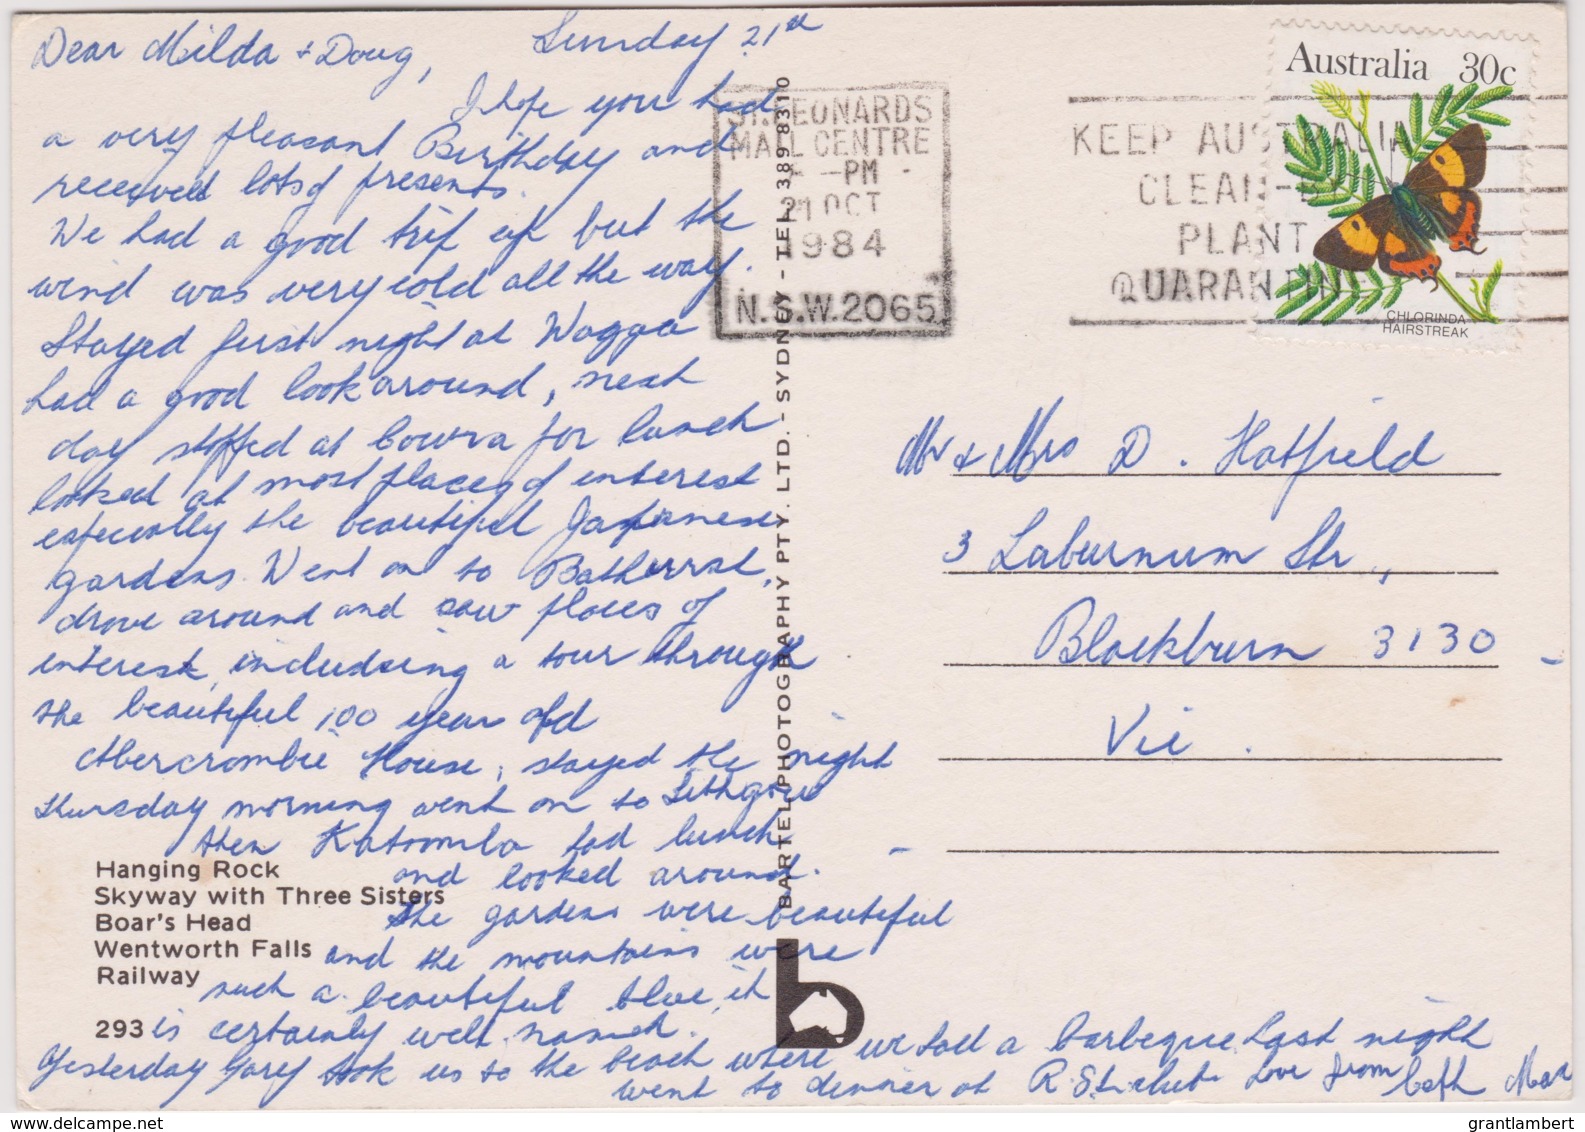 Dear Milda + Doug, Sunday 21st
I hope you had
a very pleasant Birthday and
received lots of presents.
We had a good trip up but the
wind was very cold all the way.
Stayed first night at Wagga
had a good look around, next
day stopped at Cowra for lunch
looked at most places of interest
especially the beautiful Japanese
gardens. Went on to Bathurst,
drove around and saw places of
interest, including a tour through
the beautiful 100 year old
Abercrombie House, stayed the night
thursday morning went on to Lithgow
then Katoomba had lunch
and looked around.
The gardens were beautiful
and the mountains were
such a beautiful blue, it
is certainly well named.
Yesterday Gary took us to the beach where we had a barbeque Last night
went to dinner at R.S.L club Love from
Hanging Rock
Skyway with Three Sisters
Boar's Head
Wentworth Falls
Railway
293
BARTEL PHOTOGRAPHY PTY. LTD. - SYDNEY - TEL 389 8310
ST. LEONARDS
MAIL CENTRE
-PM
21 OCT
1984
N.S.W. 2065
KEEP AUSTRALIA
CLEAN-BY
PLANT
QUARANTINE
Australia 30c
CHLORINDA
HAIRSTREAK
Mr & Mrs D. Hatfield
3 Laburnum Str.,
Blackburn 3130
Vic.
© https://www.delcampe.net
grantlambert